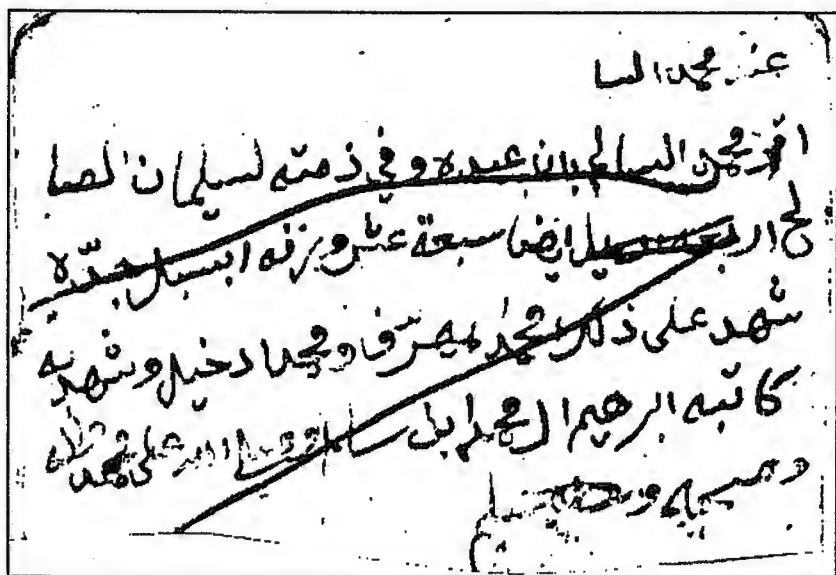 عند محمد السا
اقر محمد السالم بان عنده وفي ذمته لسليمان الصا
لح اربعة ايضا سبعة عشر وزنه
شهد على ذلك محمد وشهد به
كاتبه ابرهيم ال محمد ابن سالم وصلى الله على محمد واله
وصحبه وسلم